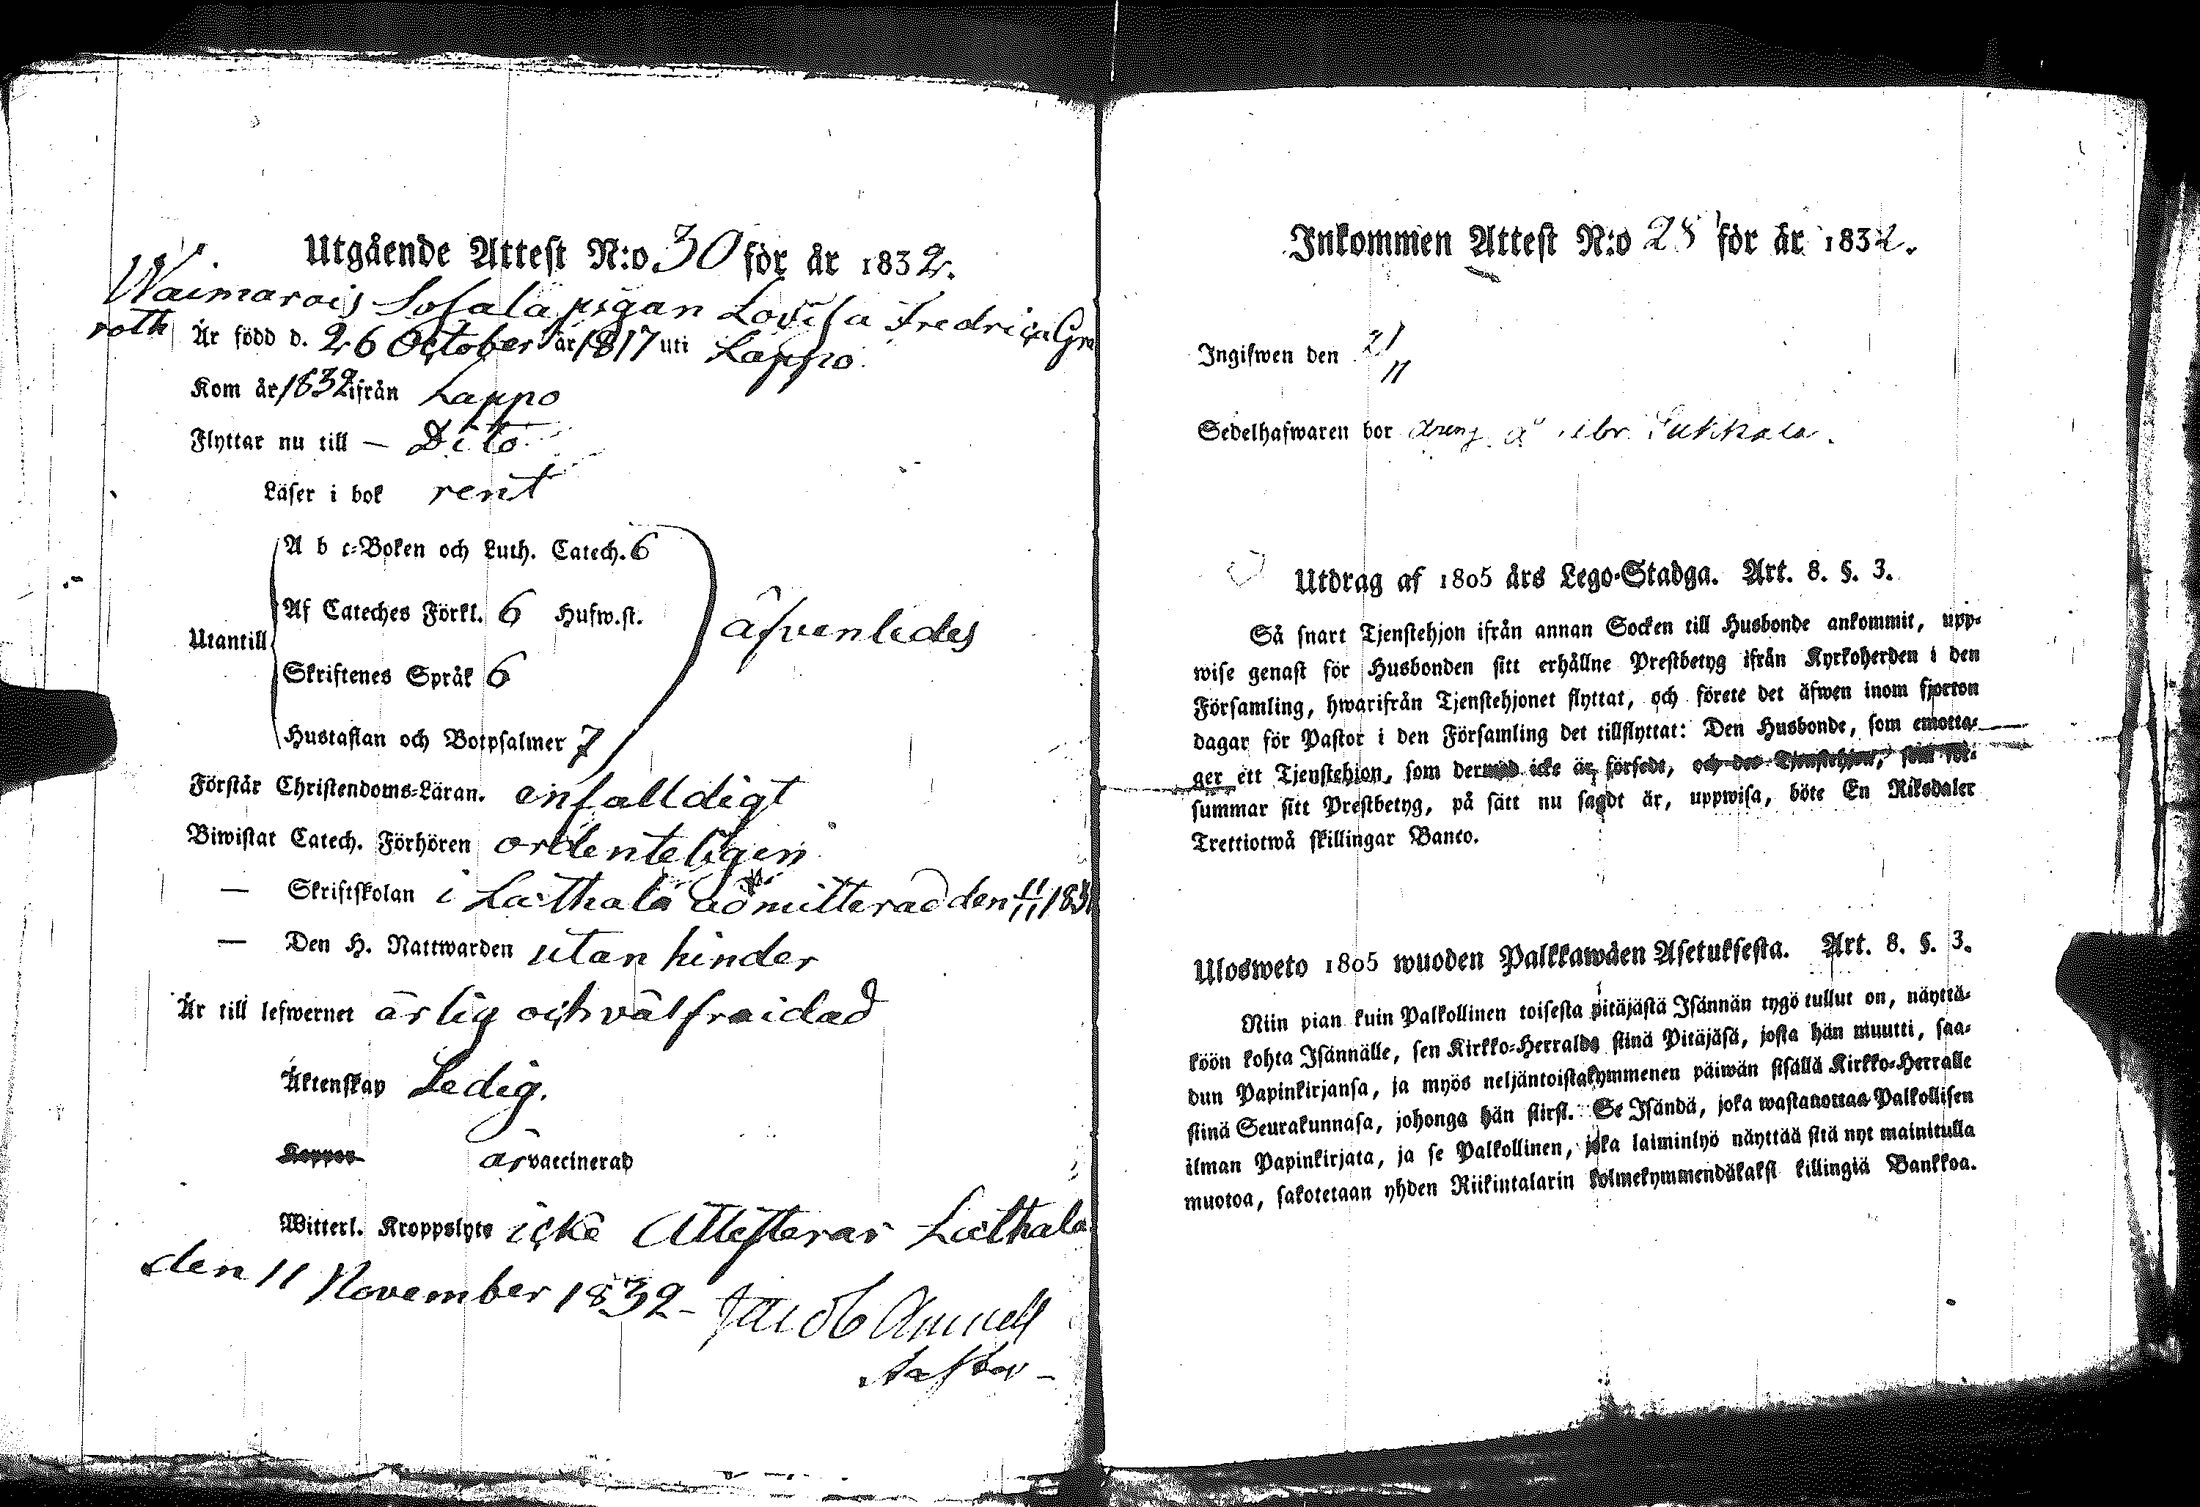 Utgående Attest N:o 30 för år 1832.
Waimarois Sofala pigan Lovisa Fredrica Gn
roth Är född d. 26 October år 1817 uti Lappo.
Kom år 1832 ifrån Lappo
Flyttar nu till — Dito
Läser i bok rent
A b c-Boken och Luth. Catech. 6
Af Cateches Förkl. 6 Husw.st.
Utantill åfvenledes
Skriftenes Språk 6
Hustaflan och Botpsalmer 7
Förstår Christendoms-Läran. enfalldigt
Biwistat Catech. Förhören ordenteligen
— Skriftskolan i Laithala admitterad den 11/11 183
— Den H. Nattwarden utan hinder
Är till lefwernet ärlig och välfraidad
Äktenskap Ledig.
Koppor är vaccinerad
Witterl. Kroppslyte icke Attesterar Laithala
den 11 November 1832 - Jacob
Pastor -
Inkommen Attest N:o 25 för år 1832.
Ingifwen den 21/11
Sedelhafwaren bor
Utdrag af 1805 års Lego-Stadga. Art. 8. §. 3.
Så snart Tjenstehjon ifrån annan Socken till Husbonde ankommit, upp-
wise genast för Husbonden sitt erhållne Prestbetyg ifrån Kyrkoherden i den
Församling, hwarifrån Tjenstehjonet flyttat, och förete det äfwen inom fjorton
dagar för Pastor i den Församling det tillflyttat: Den Husbonde, som emotta-
ger ett Tjenstehjon, som dermed icke är försedt, och det Tjenstehjon, som för-
summar sitt Prestbetyg, på sätt nu sagdt är, uppwisa, böte En Riksdaler
Trettiotwå skillingar Banco.
Ulosweto 1805 wuoden Palkkawäen Asetuksesta. Art. 8. §. 3.
Niin pian kuin Palkollinen toisesta pitäjästä Isännän tygö tullut on, näyttä-
köön kohta Isännälle, sen Kirkko-Herralda siinä Pitäjäsä, josta hän muutti, saa-
dun Papinkirjansa, ja myös neljäntoistakymmenen päiwän sisällä Kirkko-Herralle
siinä Seurakunnasa, johonga hän siirsi. Se Isändä, joka wastanottaa Palkollisen
ilman Papinkirjata, ja se Palkollinen, joka laiminlyö näyttää sitä nyt mainitulla
muotoa, sakotetaan yhden Riikintalarin kolmekymmendäkaksi killingiä Bankkoa.